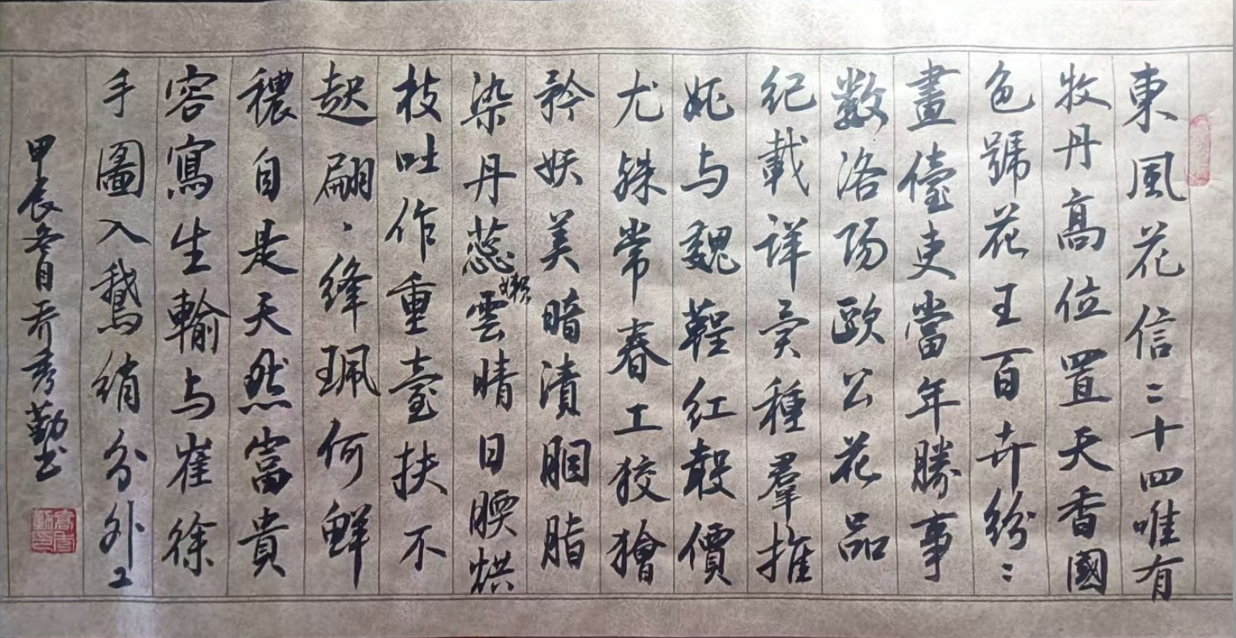 東風花信二十四唯有
牧丹高位置天香國
色號花王百卉紛〻
畫儓吏當年勝事
數洛陽歐公花品
紀載詳異種羣推
姚与魏鞓红殼價
尤殊常春工狡獪
矜妖美暗漬胭脂
染丹蕊嬾雲晴日腰烘
枝吐作重臺扶不
起翩〻绛珮何鮮
穠自是天然富貴
容寫生輸与崔徐
手圖入鵝绡分外工
甲辰冬月乔秀勤书